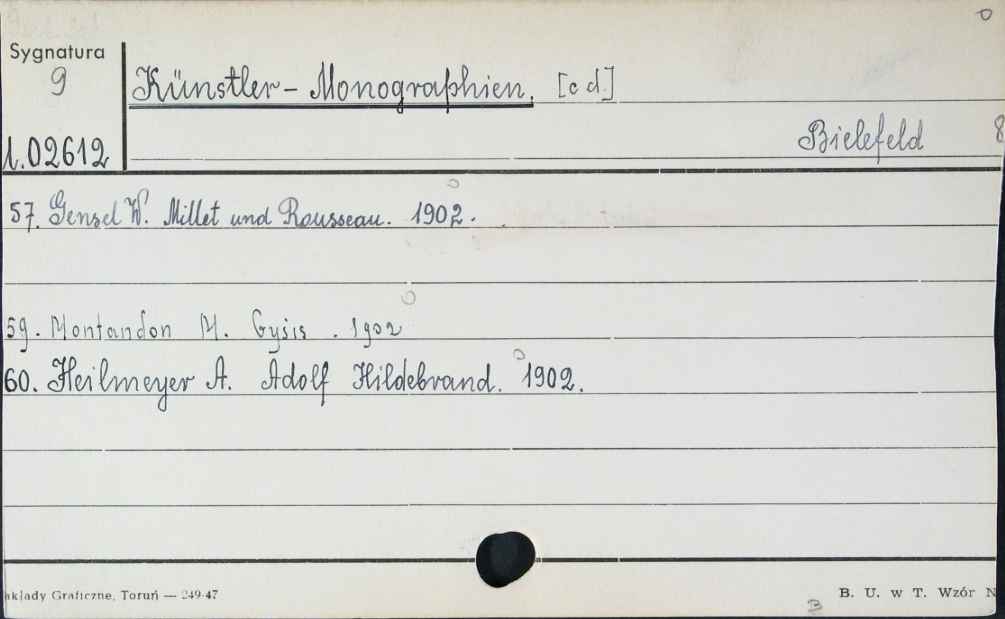 Sygnatura
9
Künstler-Monographien. [c d.]
Bielefeld 8
1.02612
57. Gensel W. Millet und Rousseau. 1902.
59. Montandon M. Gysis. 1902
60. Heilmeyer A. Adolf Hildebrand. 1902.
akłady Graficzne, Toruń — 249-47
B. U. w T. Wzór N
B